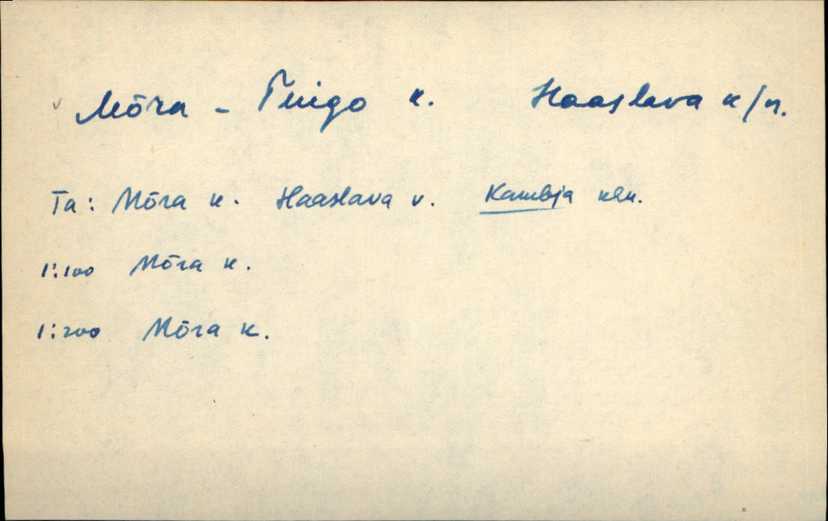 Mõra - Tuigo k. Haaslava k/n.
Ta: Mõra k. Haaslava v. Kambja khk.
1:100 Mõra k.
1:200 Mõra k.